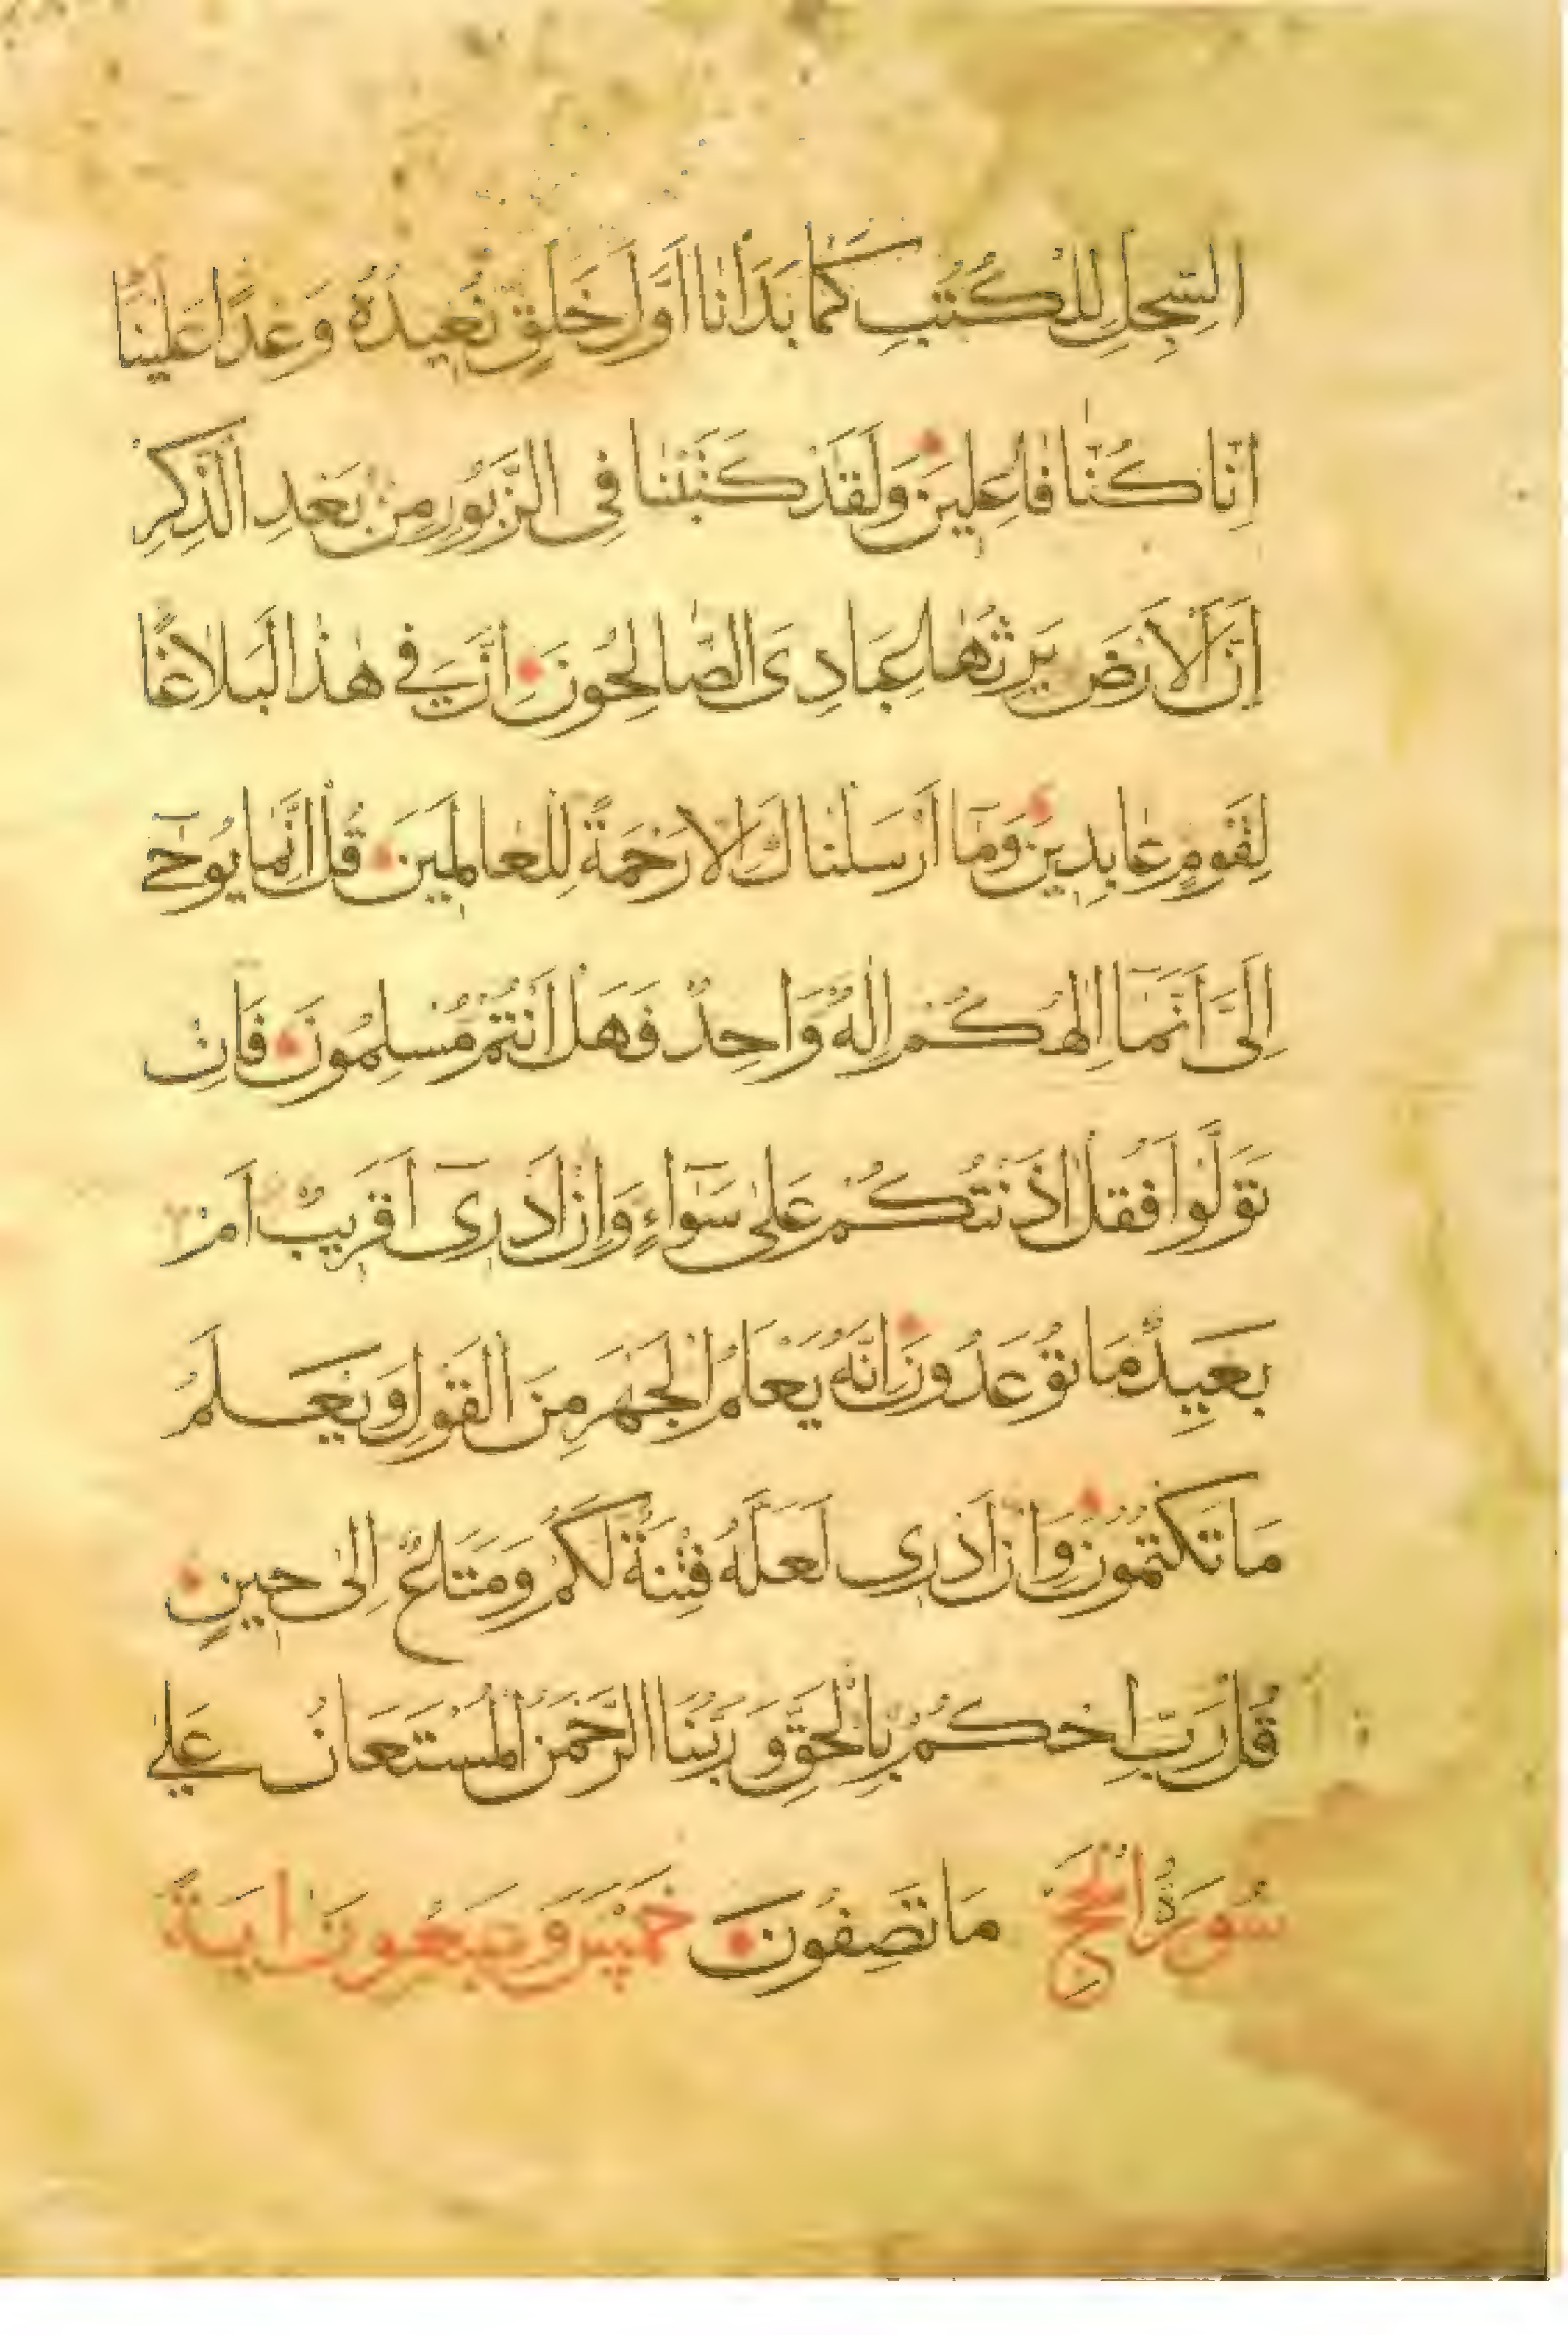 السِّجِلِّ لِلْكُتُبِ كَمَا بَدَاْنَا اَوَّلَ خَلْقٍ نُعِيدُهُ وَعْدًا عَلَيْنَا
اِنَّا كُنَّا فَاعِلِينَ وَلَقَدْ كَتَبْنَا فِى الزَّبُورِ مِنْ بَعْدِ الذِّكْرِ
اَنَّ الْاَرْضَ يَرِثُهَا عِبَادِىَ الصَّالِحُونَ اِنَّ فِى هٰذَا لَبَلَاغًا
لِقَوْمٍ عَابِدِينَ وَمَا اَرْسَلْنَاكَ اِلَّا رَحْمَةً لِلْعَالَمِينَ قُلْ اِنَّمَا يُوحٰى
اِلَىَّ اَنَّمَا اِلٰهُكُمْ اِلٰهٌ وَاحِدٌ فَهَلْ اَنْتُمْ مُسْلِمُونَ فَاِنْ
تَوَلَّوْا فَقُلْ اٰذَنْتُكُمْ عَلٰى سَوَاءٍ وَاِنْ اَدْرِى اَقَرِيبٌ اَمْ
بَعِيدٌ مَا تُوعَدُونَ اِنَّهُ يَعْلَمُ الْجَهْرَ مِنَ الْقَوْلِ وَيَعْلَمُ
مَا تَكْتُمُونَ وَاِنْ اَدْرِى لَعَلَّهُ فِتْنَةٌ لَكُمْ وَمَتَاعٌ اِلٰى حِينٍ
قُلْ رَبِّ احْكُمْ بِالْحَقِّ وَرَبُّنَا الرَّحْمٰنُ الْمُسْتَعَانُ عَلٰى
سُورَةُ الْحَجِّ مَا تَصِفُونَ خَمْسٌ وَسَبْعُونَ اٰيَةً